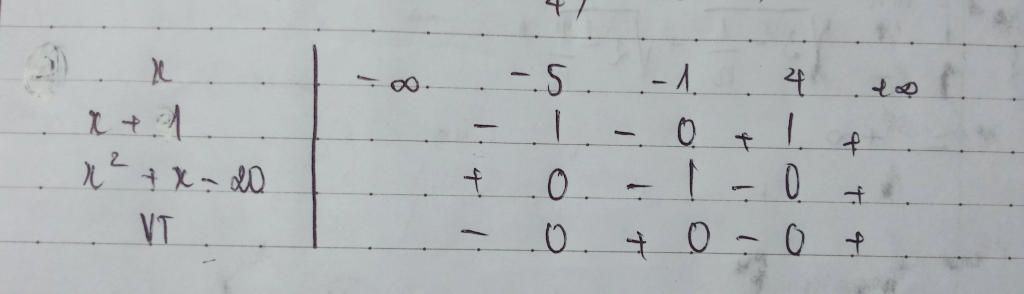 4)
x | -∞ -5 -1 4 +∞
x + 1 | - | - 0 + | +
x² + x - 20 | + 0 - | - 0 +
VT | - 0 + 0 - 0 +